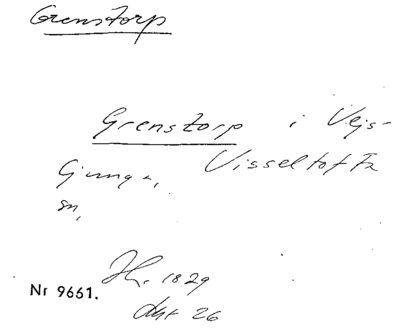 Grenstorp
Grenstorp i Vejs-
Visseltofta
sn,
1829
Nr 9661.
26